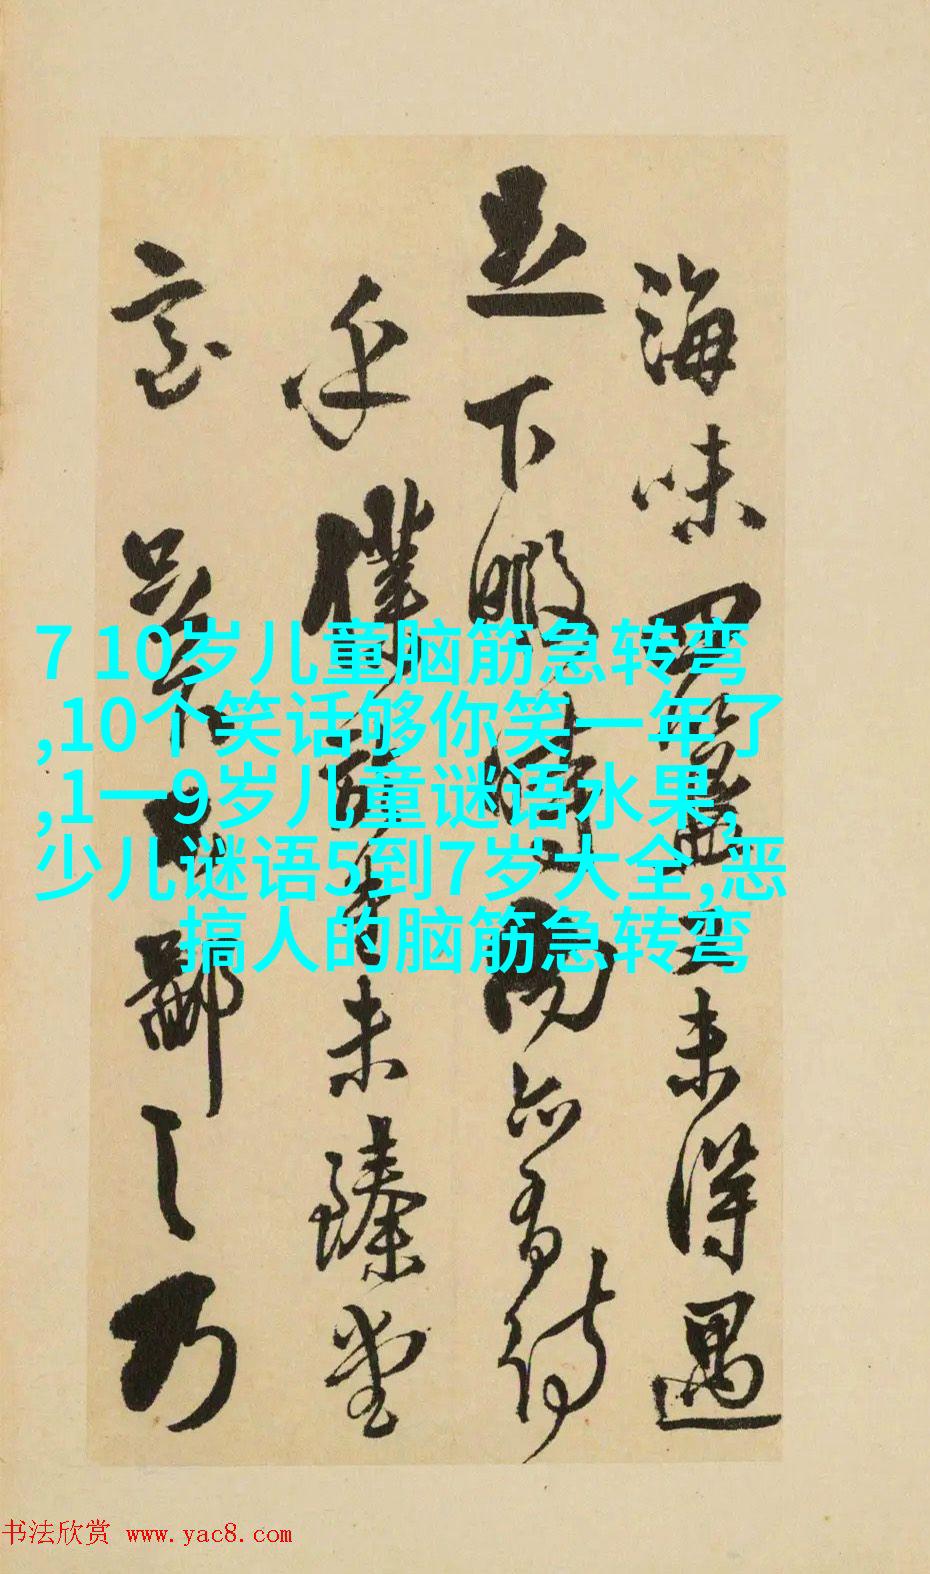 海味四簋又未得遇
足下暇時而亦有待
乎僕
未臻堂
室
鄙之乃
7 10岁儿童脑筋急转弯
,10个笑话够你笑一年了
,1一9岁儿童谜语水果,
少儿谜语5到7岁大全,恶
搞人的脑筋急转弯
书法欣赏 www.yac8.com